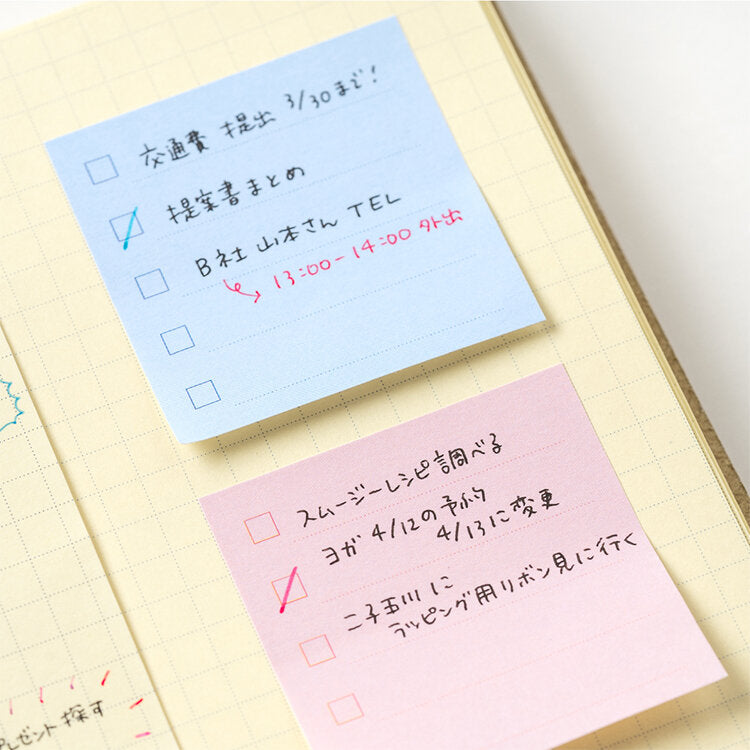 交通費 提出 3/30まで!
提案書まとめ
B社 山本さん TEL
13:00-14:00 外出
スムージーレシピ調べる
ヨガ 4/12の予約
4/13に変更
二子玉川に
ラッピング用リボン見に行く
プレゼント探す